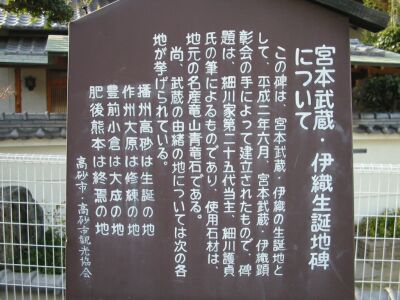 宮本武蔵・伊織生誕地碑
について
この碑は、宮本武蔵、伊織の生誕地と
して、平成二年六月、宮本武蔵・伊織顕
彰会の手によって建立されたもので、碑
題は、細川家第二十五代当主、細川護貞
氏の筆によるものであり、使用石材は、
地元の名産竜山青竜石である。
尚、武蔵の由緒の地については次の各
地が挙げられている。
播州高砂は生誕の地
作州大原は修練の地
豊前小倉は大成の地
肥後熊本は終焉の地
高砂市・高砂市観光協会